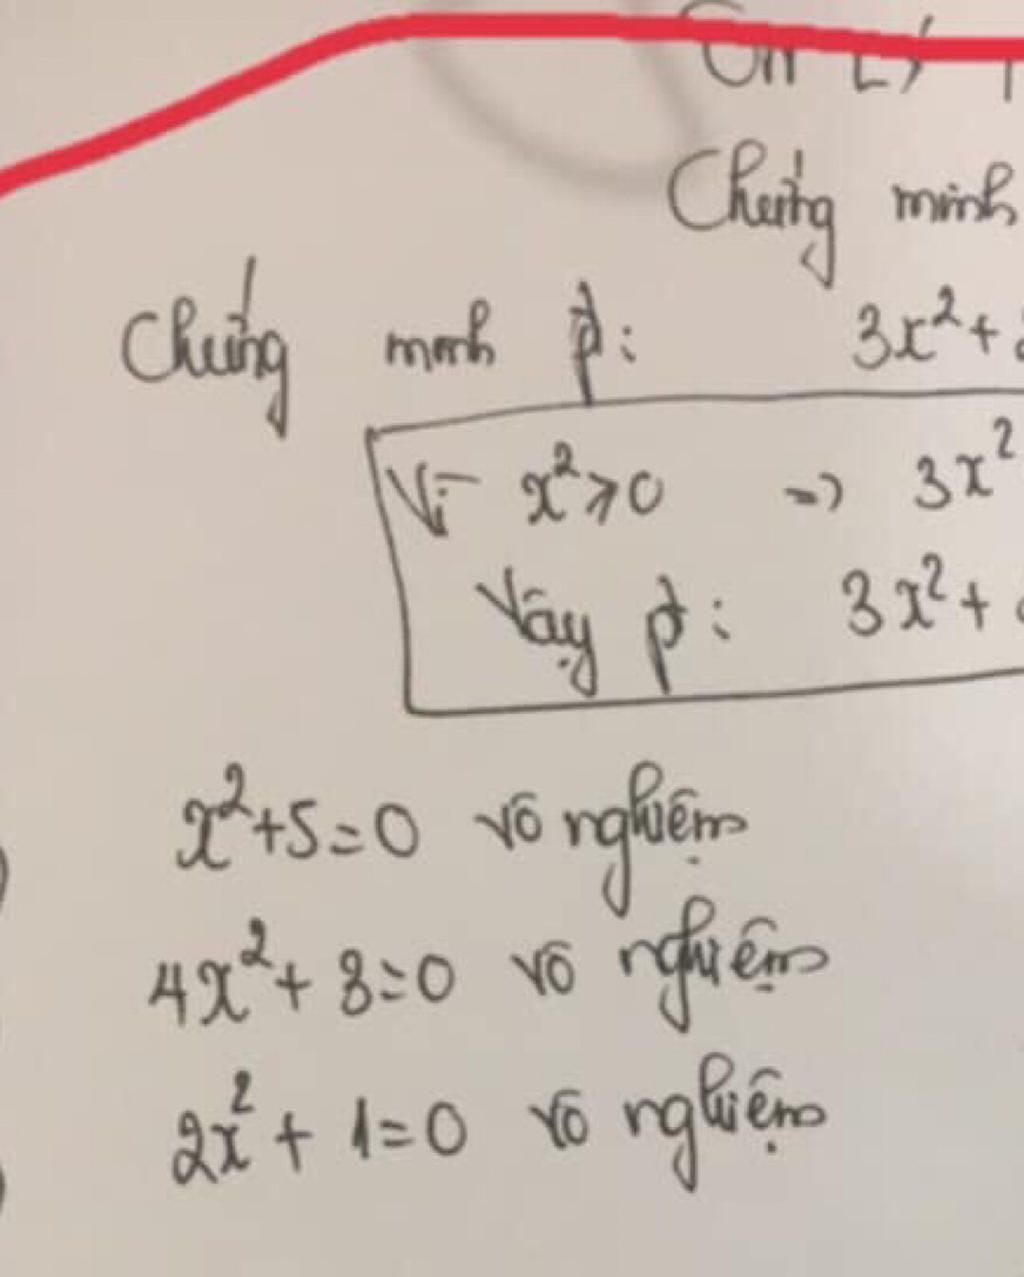 Chứng minh
Chứng minh pt: 3x² +
Vì x² ⩾ 0 => 3x²
Vậy pt: 3x² +
x² + 5 = 0 vô nghiệm
4x² + 8 = 0 vô nghiệm
2x² + 1 = 0 vô nghiệm